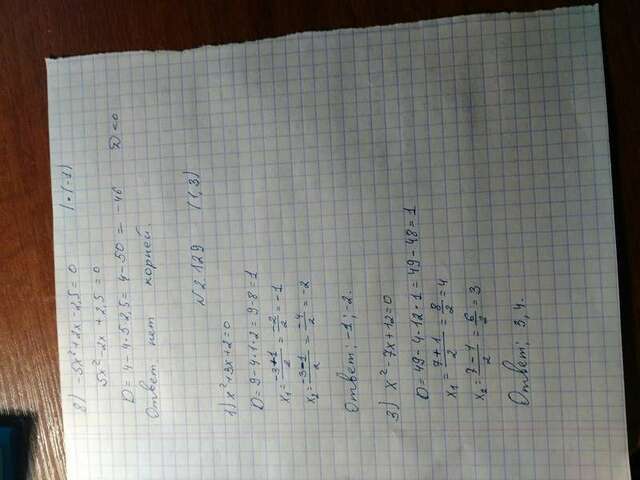 8) -5x²+2x-2,5=0 |·(-1)
5x²-2x+2,5=0
D=4-4·5·2,5=4-50=-46 D<0
Ответ нет корней.
№2.129 (1,3)
1) x²+3x+2=0
D=9-4·1·2=9-8=1
x₁=(-3+1)/2=-2/2=-1
x₂=(-3-1)/2=-4/2=-2
Ответ: -1; -2.
3) x²-7x+12=0
D=49-4·12·1=49-48=1
x₁=(7+1)/2=8/2=4
x₂=(7-1)/2=6/2=3
Ответ: 3, 4.